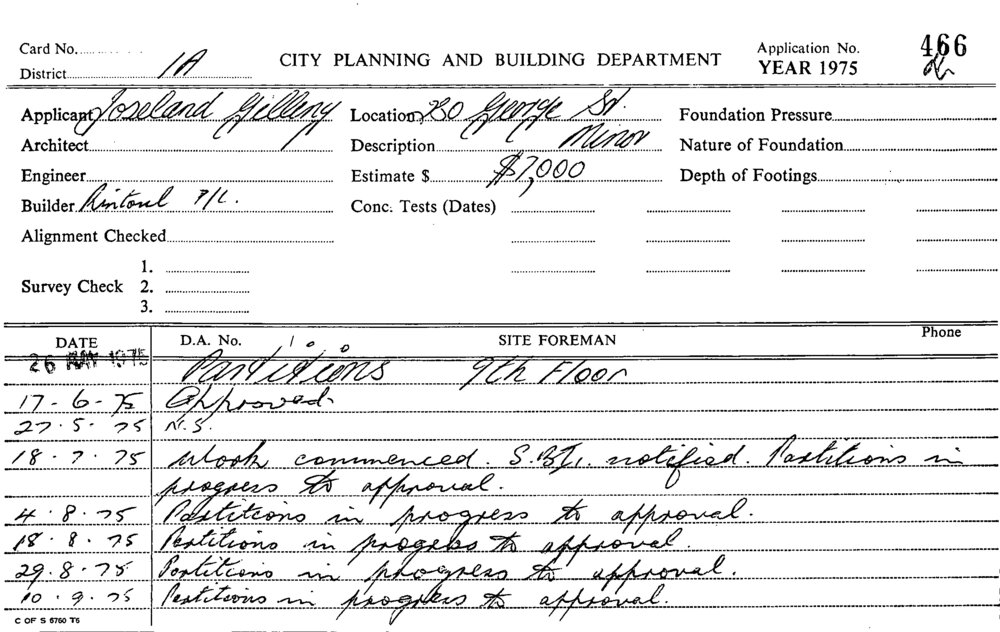 Card No.
District 1A
CITY PLANNING AND BUILDING DEPARTMENT
Application No. 466
YEAR 1975
Applicant Joseland Gilleny
Location 230 George St.
Foundation Pressure
Architect
Description Minor
Nature of Foundation
Engineer
Estimate $ $7,000
Depth of Footings
Builder Rintoul P/L.
Conc. Tests (Dates)
Alignment Checked
Survey Check 1.
2.
3.
DATE D.A. No. SITE FOREMAN Phone
26 MAY 1975 Partitions 9th Floor
17-6-75 Approved.
27.5.75 N.S.
18.7.75 Work commenced. S.B.I. notified. Partitions in
progress to approval.
4.8.75 Partitions in progress to approval.
18.8.75 Partitions in progress to approval.
29.8.75 Partitions in progress to approval.
10.9.75 Partitions in progress to approval.
C OF S 6760 T6